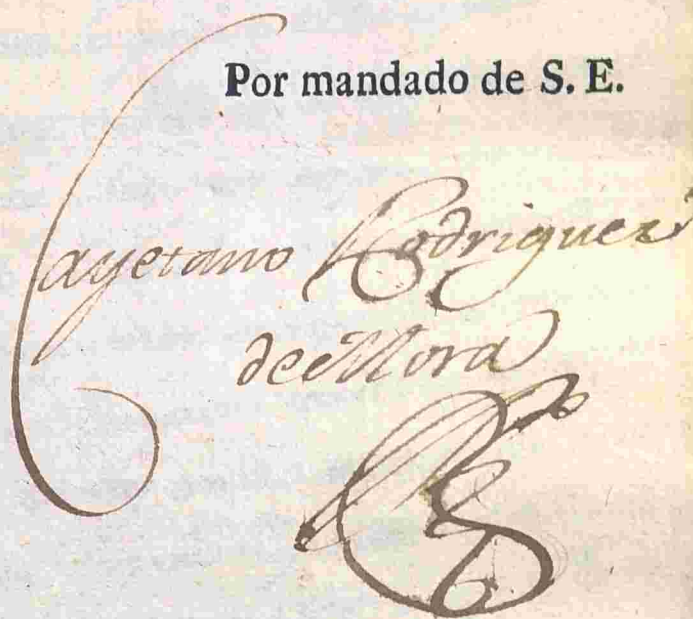 Por mandado de S. E.
Cayetano Rodriguez
de Mora